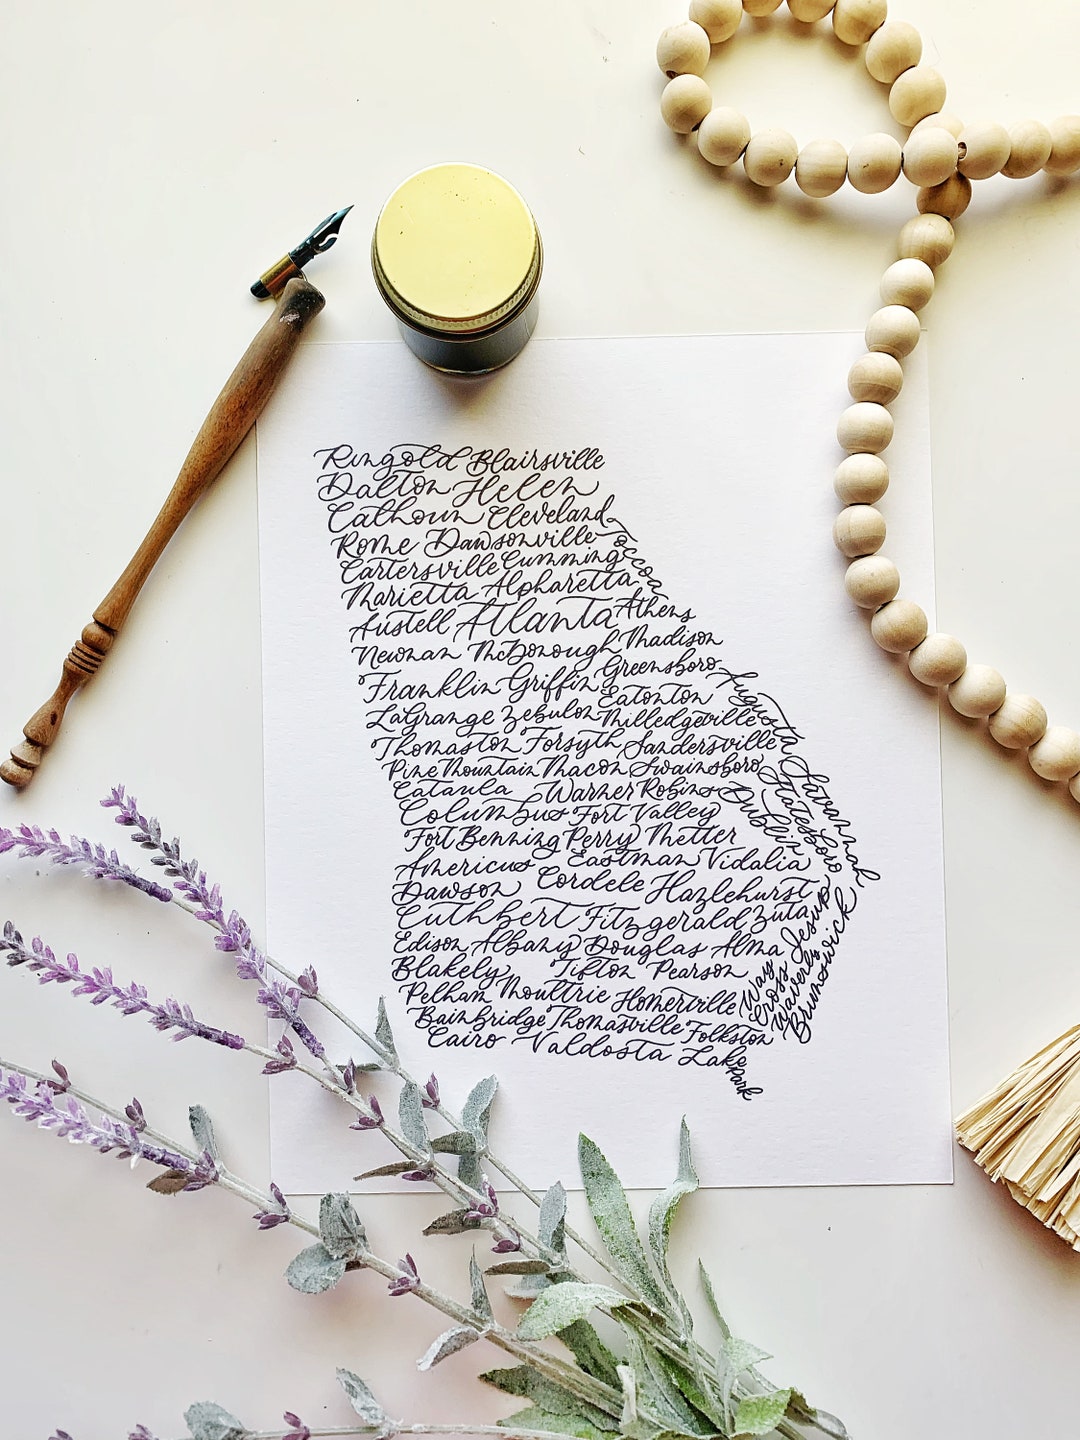 Ringold Blairsville
Dalton Helen
Calhoun Cleveland
Toccoa
Rome Dawsonville
Cartersville Cumming
Marietta Alpharetta
Austell Atlanta Athens
Newnan McDonough Madison
Franklin Griffin Greensboro
Augusta
LaGrange Zebulon Eatonton
Milledgeville
Thomaston Forsyth Sandersville
Pine Mountain Macon Swainsboro
Cataula Warner Robins
Dublin
Statesboro
Savannah
Columbus Fort Valley
Fort Benning Perry Metter
Americus Eastman Vidalia
Dawson Cordele Hazlehurst
Cuthbert Fitzgerald Zuta
Jesup
Edison Albany Douglas Alma
Blakely Tifton Pearson
Way Cross
Waverly
Brunswick
Pelham Moultrie Homerville
Bainbridge Thomasville Folkston
Cairo Valdosta Lake
Park